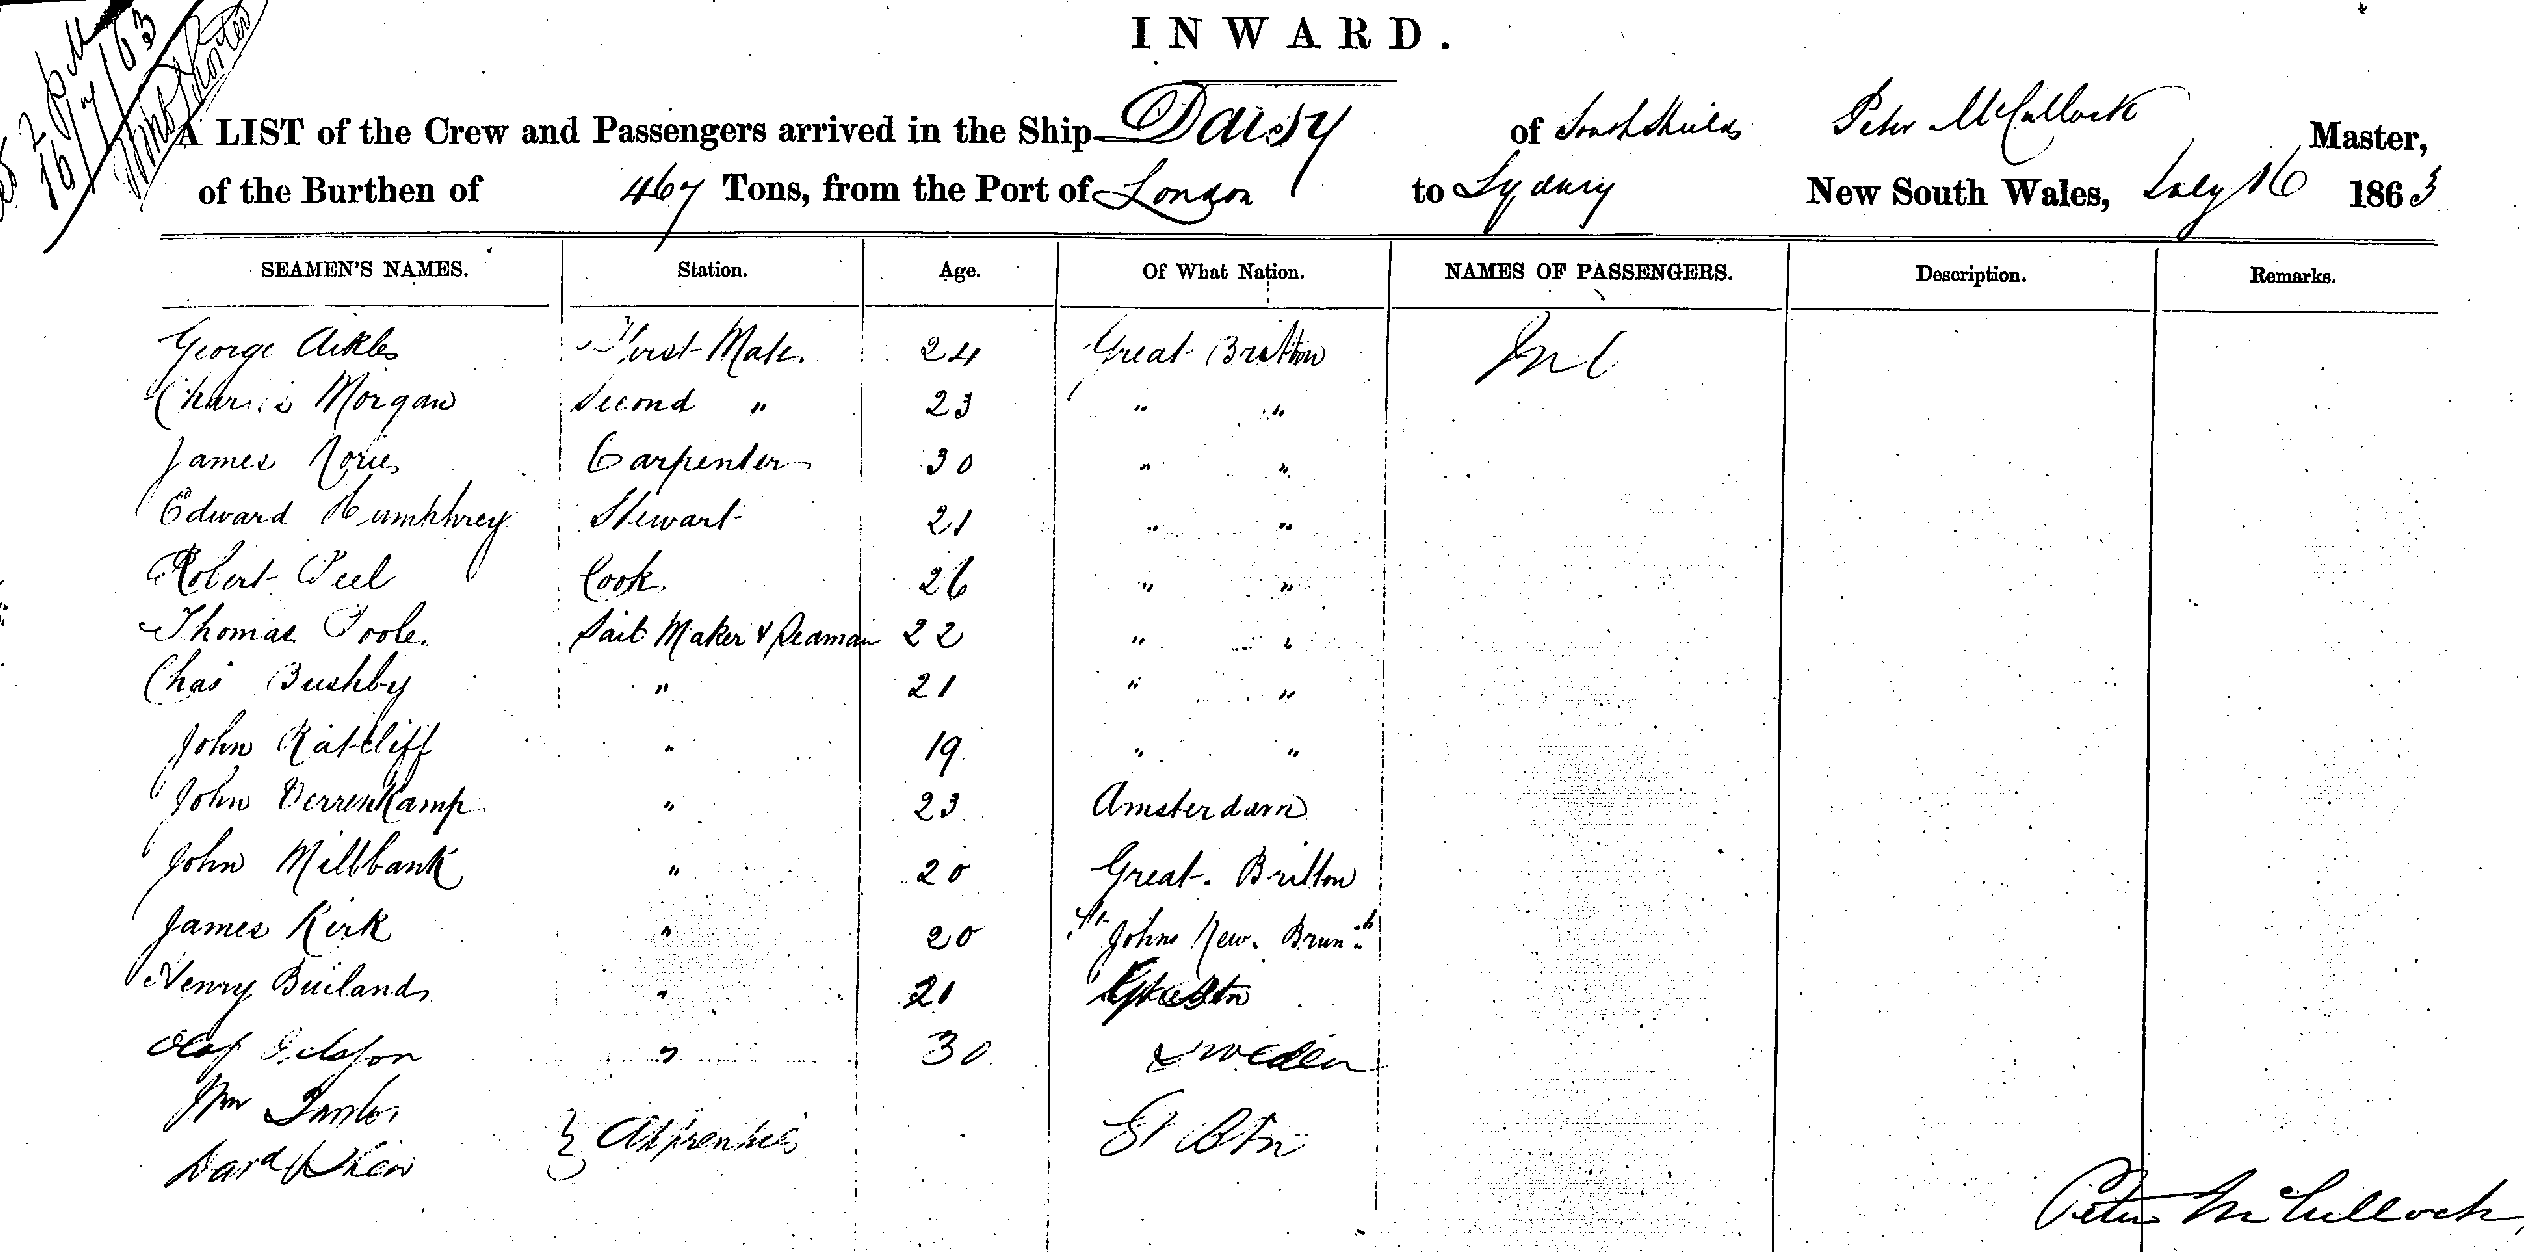 2 PM
16/7/63
INWARD.
A LIST of the Crew and Passengers arrived in the Ship Daisy of South Shields Peter McCullock Master,
of the Burthen of 467 Tons, from the Port of London to Sydney New South Wales, July 16 1863
SEAMEN'S NAMES. Station. Age. Of What Nation. NAMES OF PASSENGERS. Description. Remarks.
George Aikles First Mate 24 Great Britton Nil
Charles Morgan Second " 23 " "
James Rories Carpenter 30 " "
Edward Humphrey Stewart 21 " "
Robert Peel Cook 26 " "
Thomas Poole Sail Maker & Seaman 22 " "
Chas Bushby " 21 " "
John Ratcliff " 19 " "
John Derrenkamp " 23 Amsterdam
John Millbank " 20 Great Britton
James Kirk " 20 St Johns New Brunsk
Henry Builands " 21
Olof " 30 Sweden
Wm
} Apprentices Gt Btn
Davd
Peter McCullock